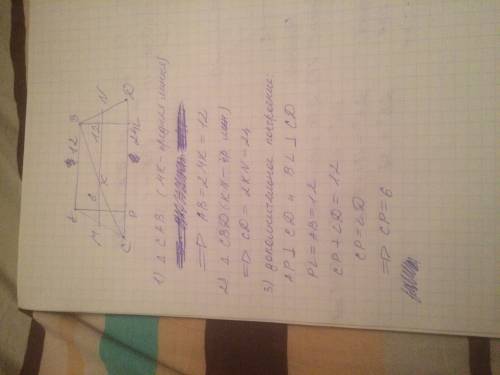 A 12 B
M 6 K 12 N
C P 24 L D
1) Δ CAB (MK - средняя линия)
=> AB = 2MK = 12
2) Δ CBD (KN - ср лин)
=> CD = 2KN = 24
3) Дополнительное построение:
AP ⊥ CD и BL ⊥ CD
PL = AB = 12
CP + LD = 12
CP = LD
=> CP = 6